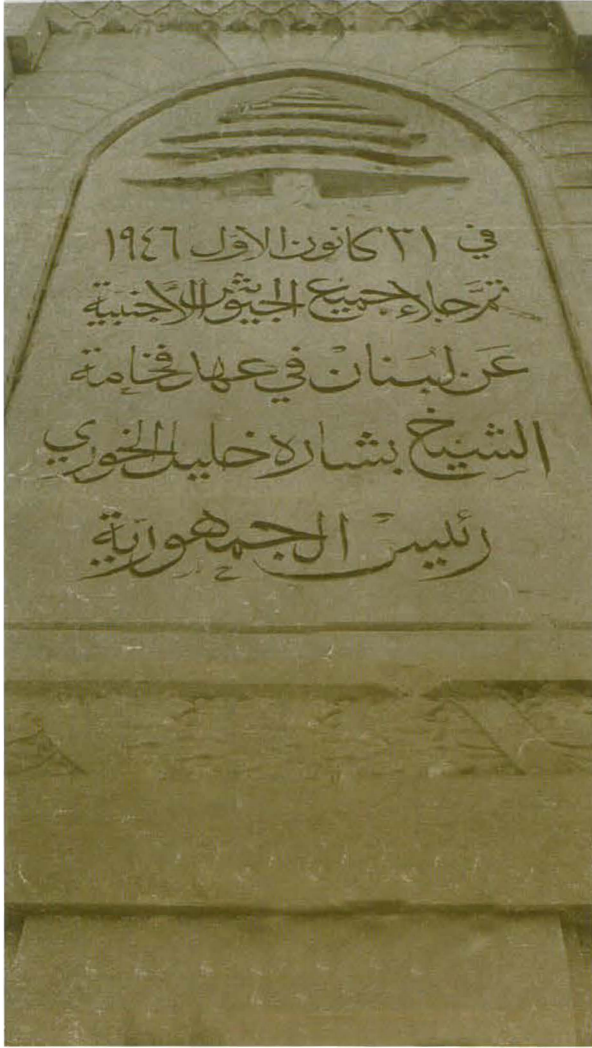 في ٣١ كانون الاول ١٩٤٦
تم جلاء جميع الجيوش الأجنبية
عن لبنان في عهد فخامة
الشيخ بشاره خليل الخوري
رئيس الجمهورية